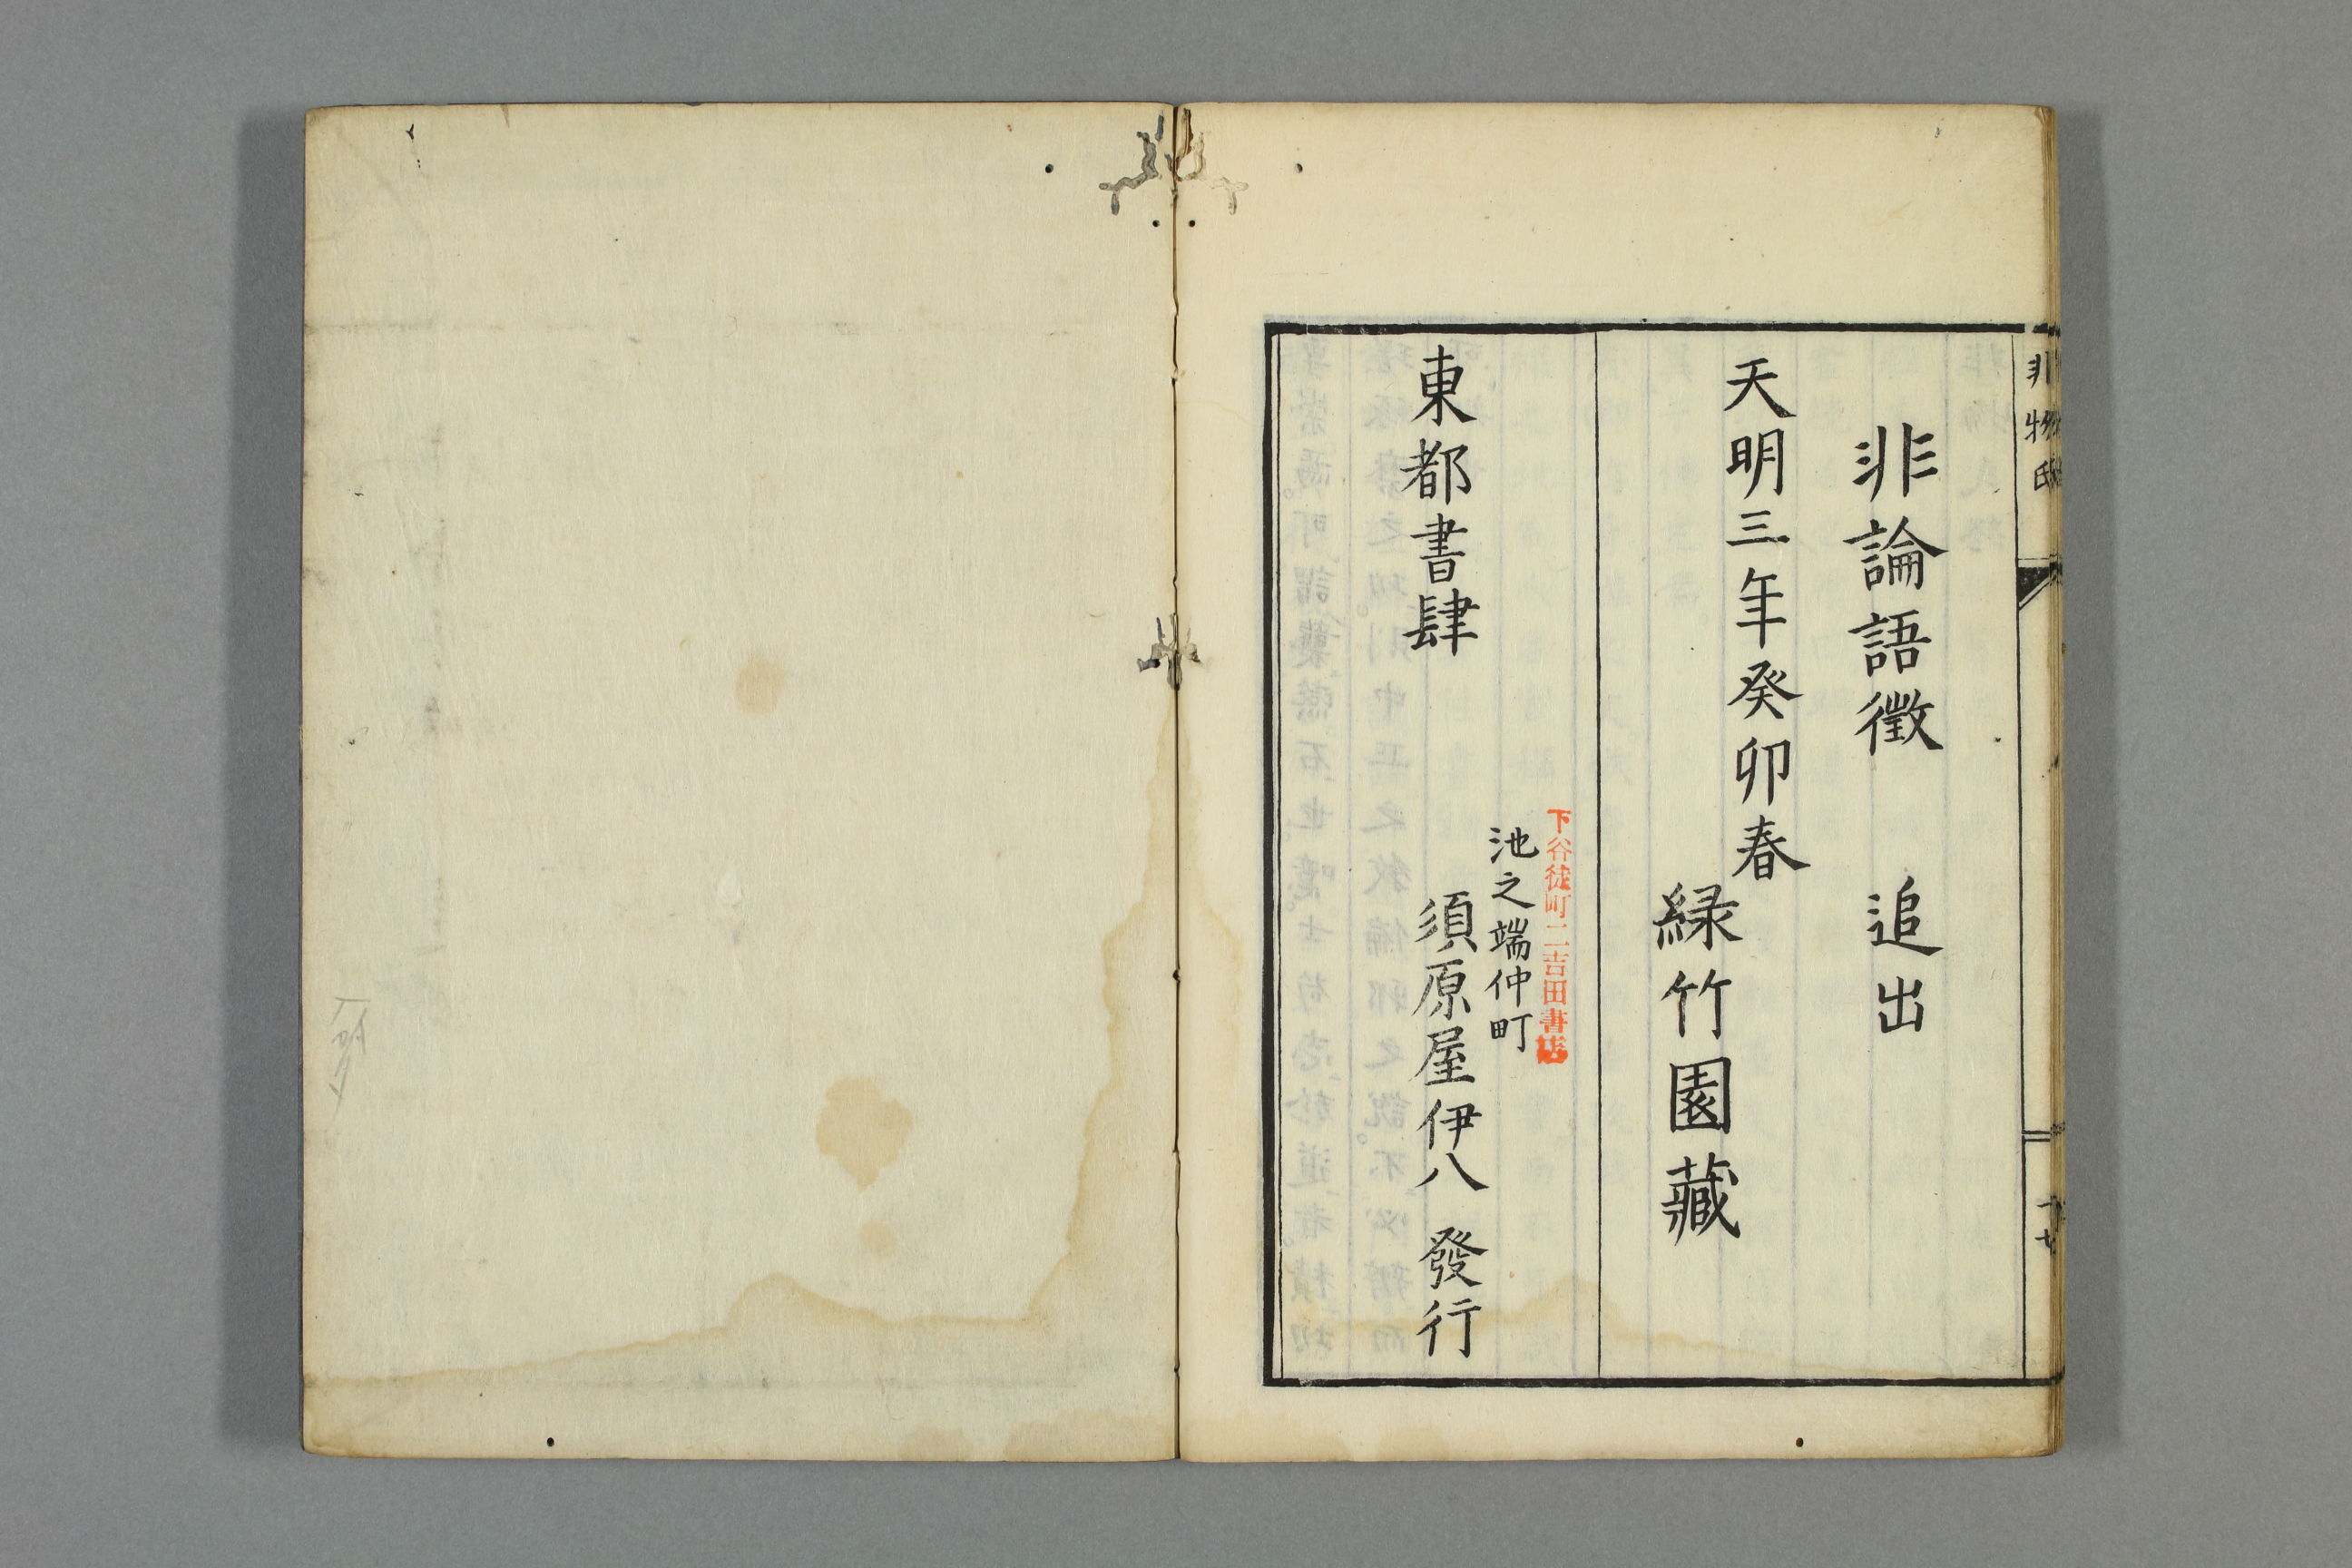 非物氏
十七
非論語徴　追出
天明三年癸卯春
緑竹園藏
下谷徒町二吉田書店
池之端仲町
東都書肆　須原屋伊八　發行